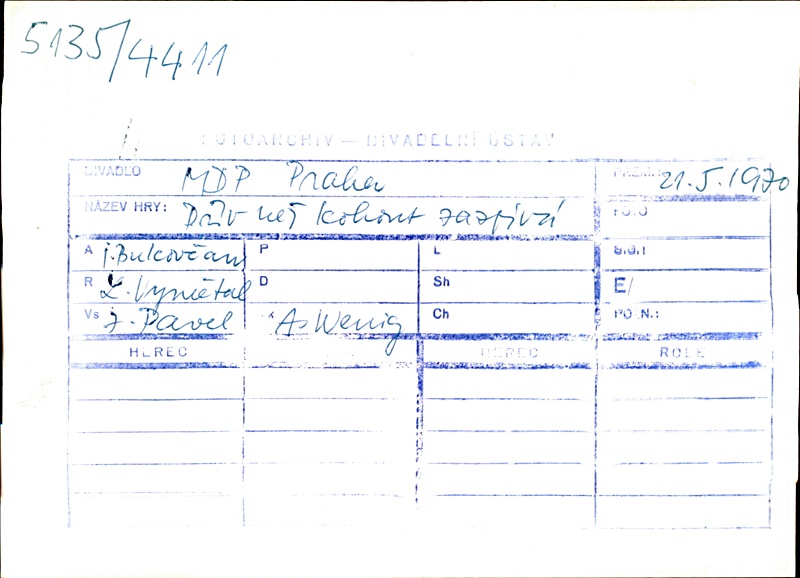 5135/4411
FOTOARCHIV — DIVADELNÍ ÚSTAV
DIVADLO MDP Praha PREM.: 21.5.1970
NÁZEV HRY: Dřív než kohout zazpívá
A I. Bukovčan P L
R L. Vymětal D Sh E/
Vs J. Pavel K A. Wenig Ch PO N.:
HEREC HEREC ROLE